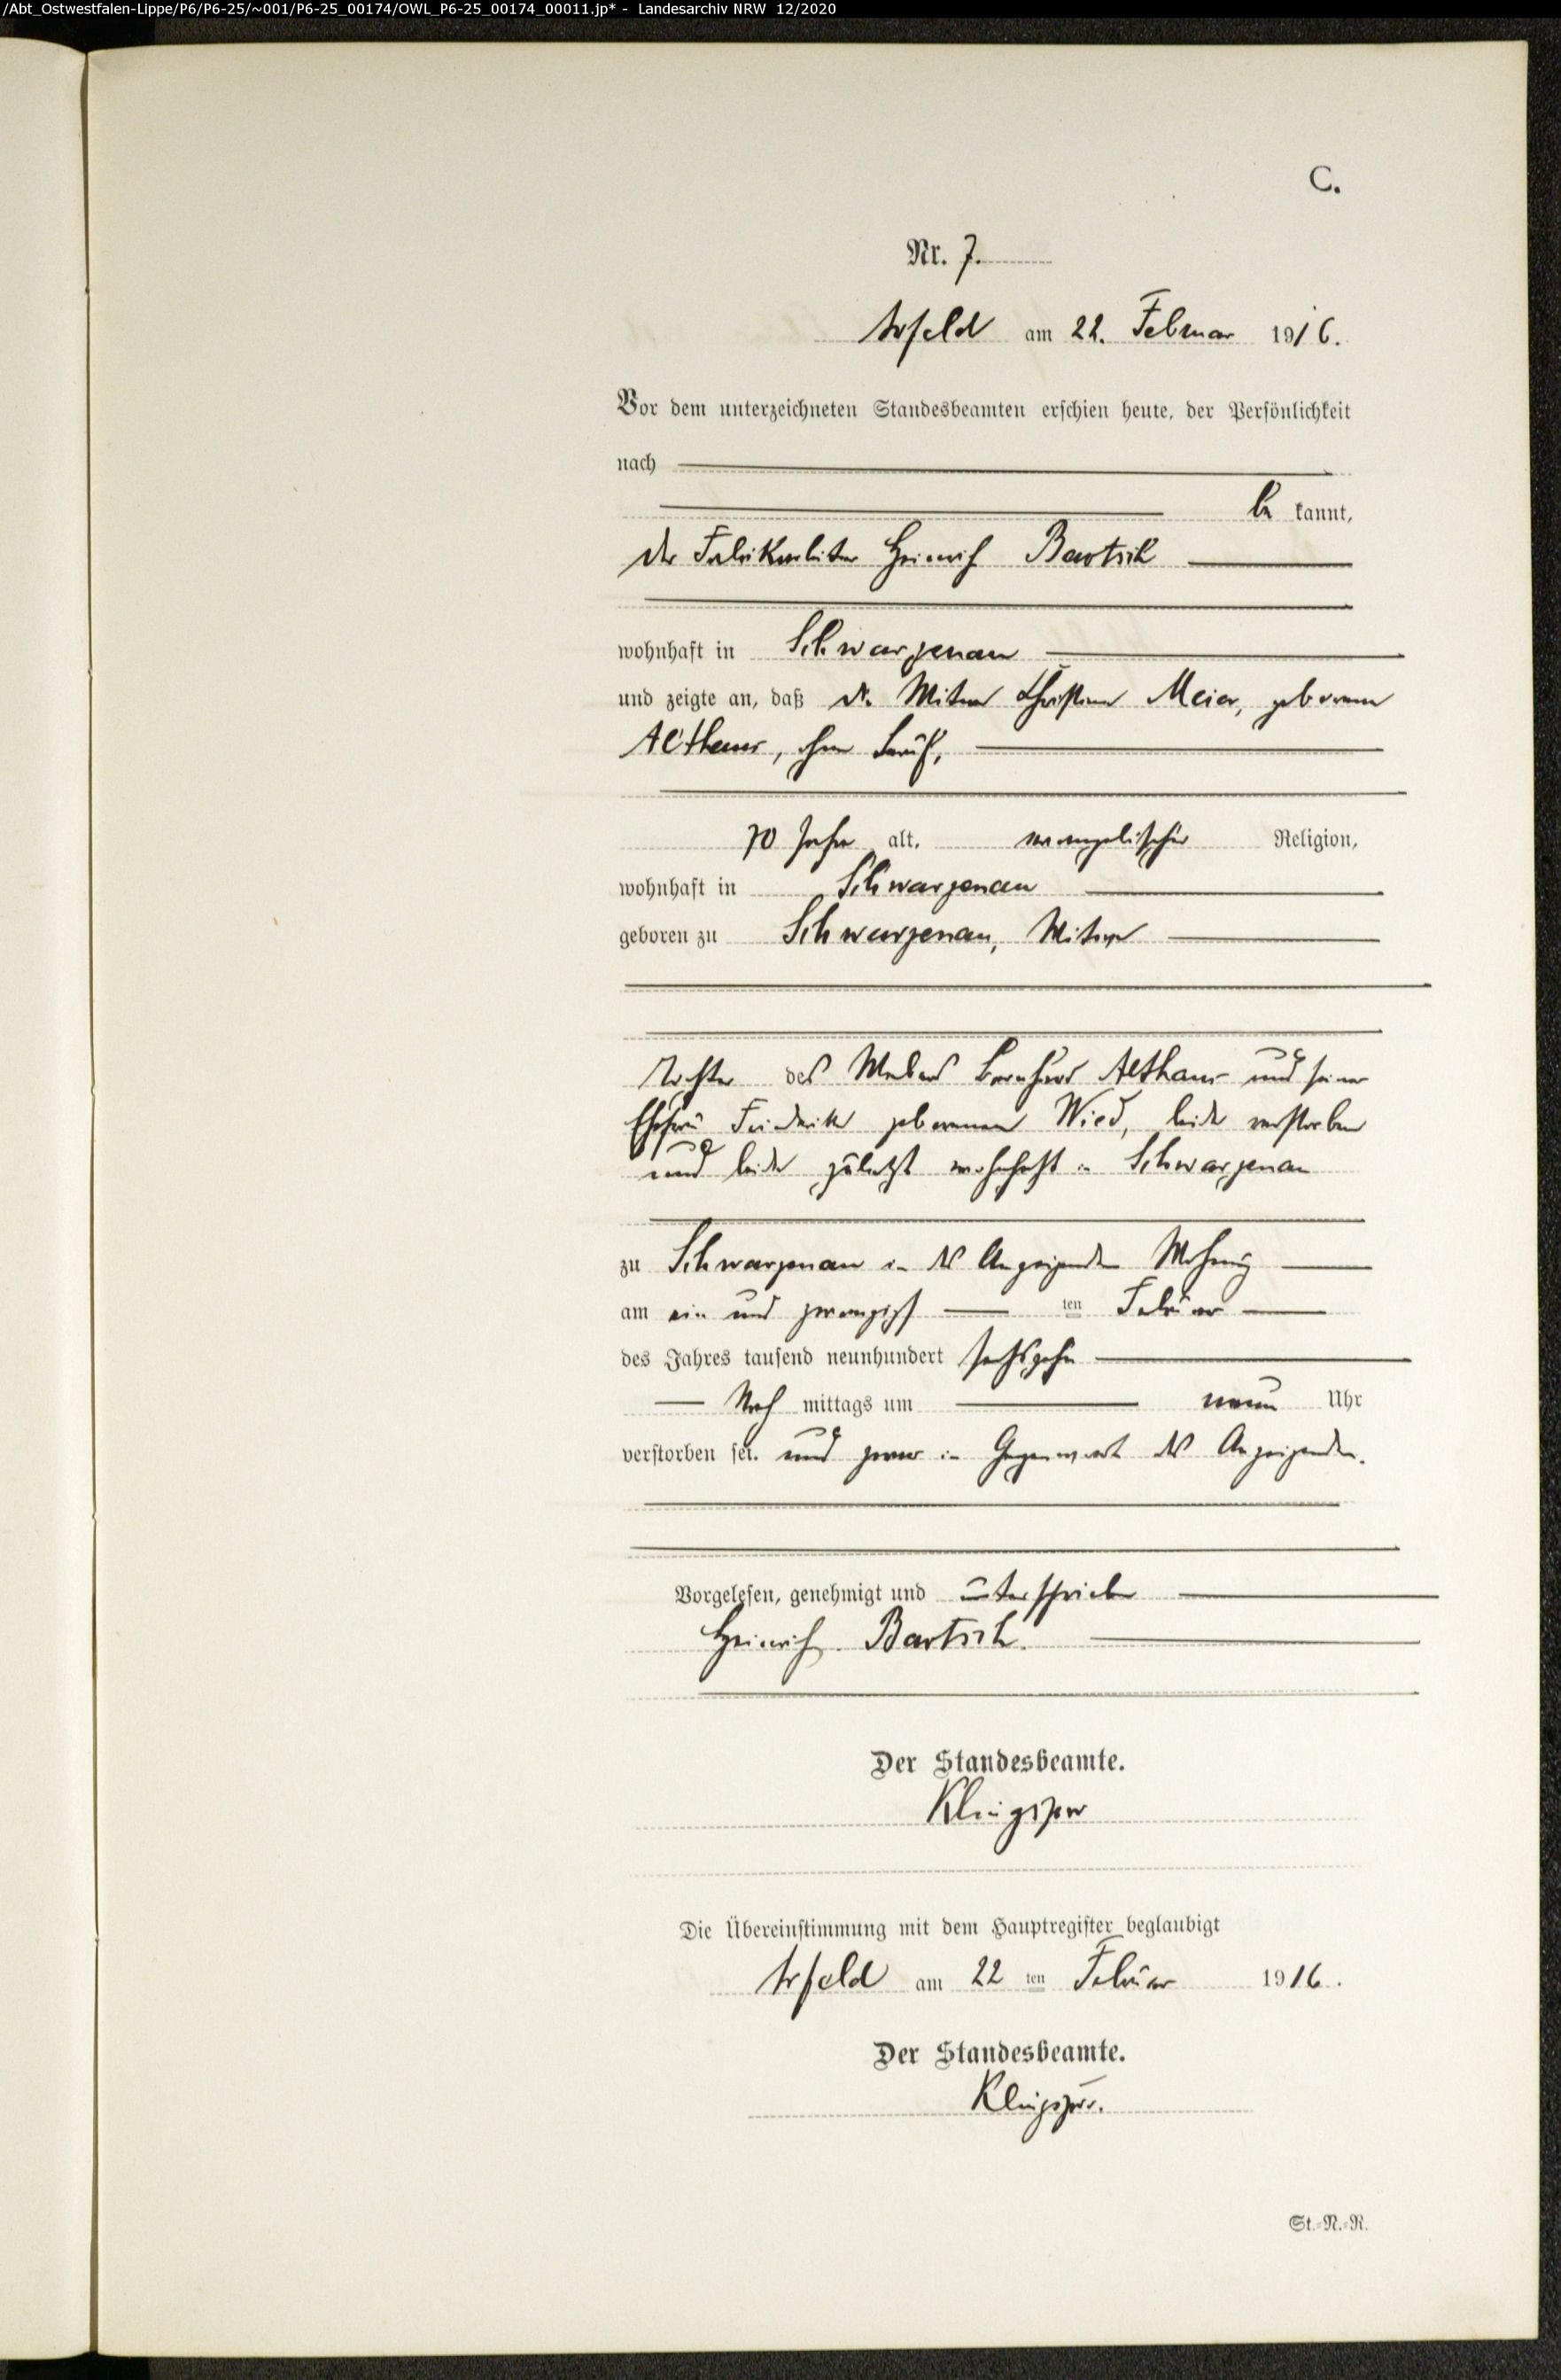 /Abt_Ostwestfalen-Lippe/P6/P6-25/~001/P6-25_00174/OWL_P6-25_00174_00011.jp* - Landesarchiv NRW 12/2020
C.
Nr. 7.
Arfeld am 22. Februar 1916.
Vor dem unterzeichneten Standesbeamten erschien heute, der Persönlichkeit
nach
be kannt,
der Fabrikarbeiter Heinrich Bartsch
wohnhaft in Schwarzenau
und zeigte an, daß die Witwe Christiane Meier, geborene
Althaus, ohne Beruf,
70 Jahre alt, evangelischer Religion,
wohnhaft in Schwarzenau
geboren zu Schwarzenau, Witwe
Tochter des Webers Bernhard Althaus und seiner
Ehefrau Friederike geborenen Wied, beide verstorben
und beide zuletzt wohnhaft in Schwarzenau
zu Schwarzenau in des Anzeigenden Wohnung
am ein und zwanzigst ten Februar
des Jahres tausend neunhundert sechszehn
Nach mittags um neun Uhr
verstorben sei. und zwar in Gegenwart des Anzeigenden.
Vorgelesen, genehmigt und unterschrieben
Heinrich Bartsch.
Der Standesbeamte.
Klingspor
Die Übereinstimmung mit dem Hauptregister beglaubigt
Arfeld am 22 ten Februar 1916.
Der Standesbeamte.
Klingspor.
St.-N.-R.